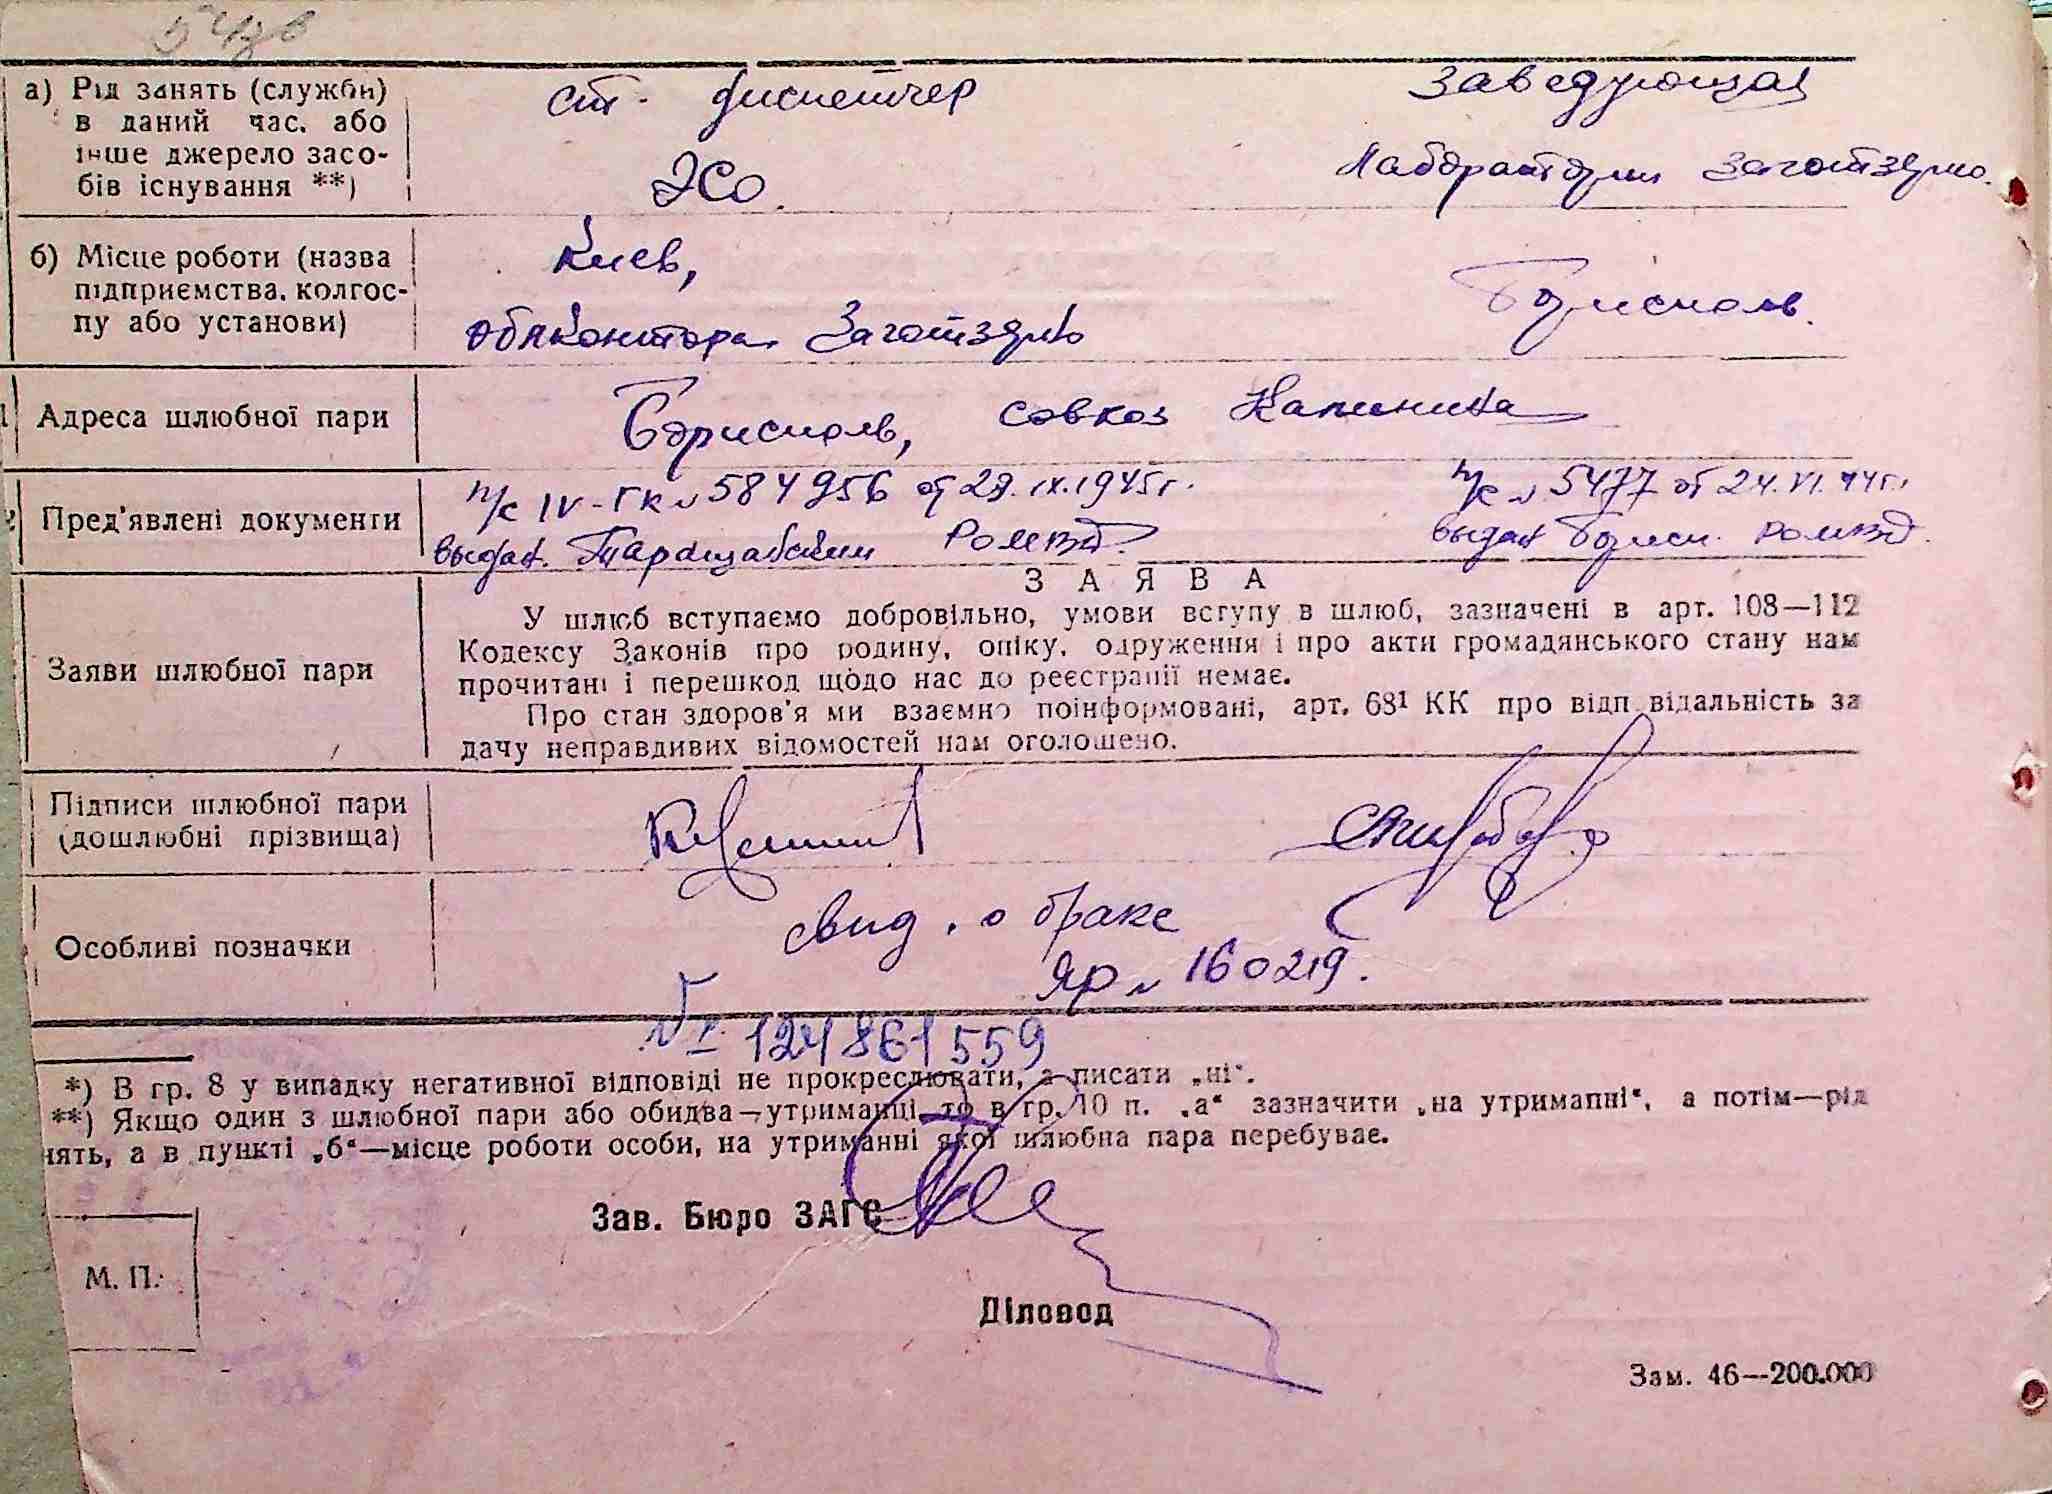 а) Рід занять (служби) в даний час, або інше джерело засобів існування **)
ст. диспетчер
ЭСО.
Заведующая
Лаборатории Заготзерно.
б) Місце роботи (назва підприємства, колгоспу або установи)
Киев,
Облконтора Заготзерно
Борисполь.
Адреса шлюбної пари
Борисполь, совхоз Калинина
Пред'явлені документи
п/с IV-ГК № 584956 от 29.IX.1945г.
выдан. Таращанским РОМВД.
п/с № 5477 от 24.VI.44г.
выдан Борисп. РОМВД.
З А Я В А
Заяви шлюбної пари
У шлюб вступаємо добровільно, умови вступу в шлюб, зазначені в арт. 108—112
Кодексу Законів про родину, опіку, одруження і про акти громадянського стану нам
прочитані і перешкод щодо нас до реєстрації немає.
Про стан здоров'я ми взаємно поінформовані, арт. 68¹ КК про відповідальність за
дачу неправдивих відомостей нам оголошено.
Підписи шлюбної пари
(дошлюбні прізвища)
Особливі позначки
свид. о браке
ЯР № 160219.
124861559
*) В гр. 8 у випадку негативної відповіді не прокреслювати, а писати „ні“.
**) Якщо один з шлюбної пари або обидва—утриманці, то в гр. 10 п. „а“ зазначити „на утриманні“, а потім—рід
нять, а в пункті „б“—місце роботи особи, на утриманні якої шлюбна пара перебуває.
Зав. Бюро ЗАГС
М. П.
Діловод
Зам. 46—200.000